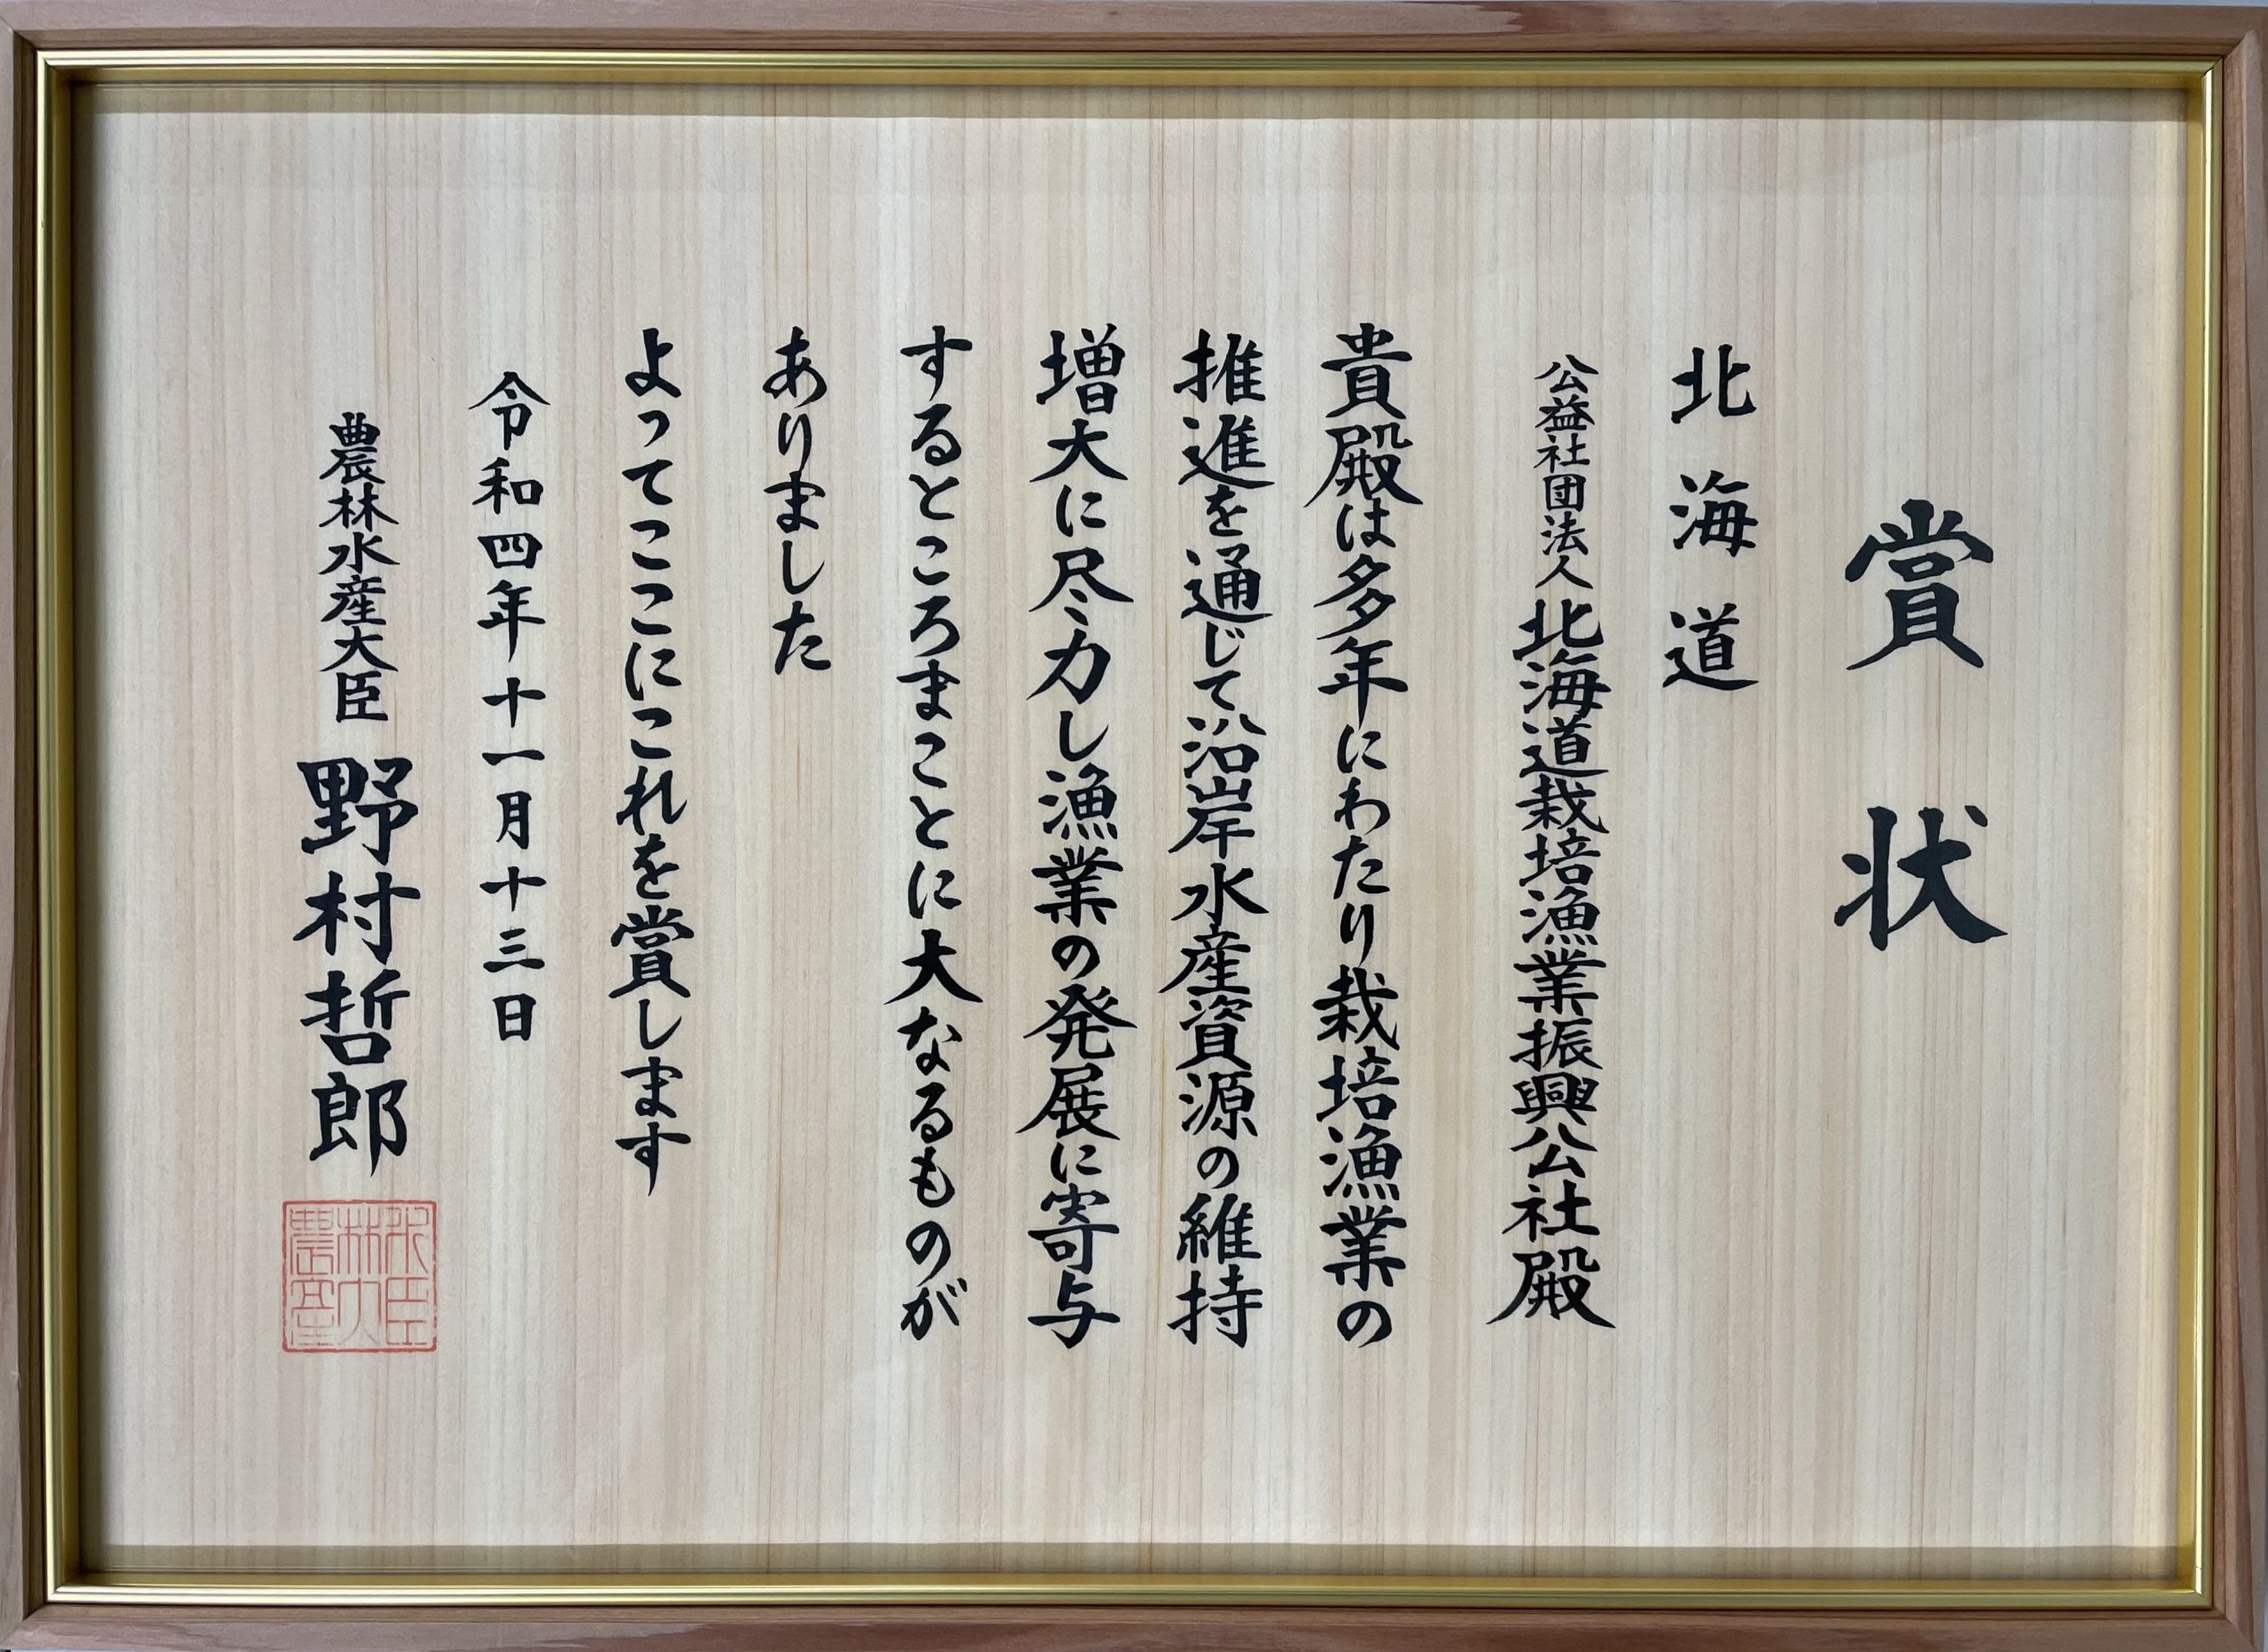 賞状
北海道
公益社団法人北海道栽培漁業振興公社殿
貴殿は多年にわたり栽培漁業の
推進を通じて沿岸水産資源の維持
増大に尽力し漁業の発展に寄与
するところまことに大なるものが
ありました
よってここにこれを賞します
令和四年十一月十三日
農林水産大臣 野村哲郎
農林水産大臣